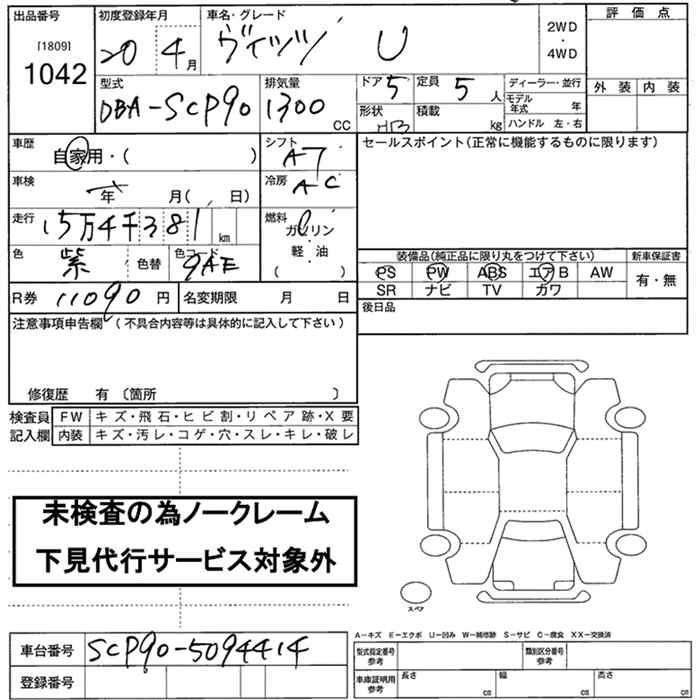 出品番号 初度登録年月 車名・グレード 評価点
[1809] 20 4月 ヴィッツ U 2WD・4WD
1042 外装 内装
型式 排気量 ドア 5 定員 5人 ディーラー・並行
DBA-SCP90 1300CC 形状 HB 積載 kg モデル年式 年
ハンドル 左・右
車歴 自家用・( ) シフト AT セールスポイント(正常に機能するものに限ります)
車検 年 月( 日) 冷房 AC
走行 15万4千381km 燃料 ガソリン・軽・油( )
色 紫 色替 色コード 9AE 装備品(純正品に限り丸をつけて下さい) 新車保証書
PS PW ABS エアB AW 有・無
R券 11090円 名変期限 月 日 SR ナビ TV ガワ
後日品
注意事項申告欄(不具合内容等は具体的に記入して下さい)
修復歴 有〔箇所 〕
検査員 FW キズ・飛石・ヒビ割・リペア跡・X要
記入欄 内装 キズ・汚レ・コゲ・穴・スレ・キレ・破レ
未検査の為ノークレーム
下見代行サービス対象外
スペア
A-キズ E-エクボ U-凹み W-補修跡 S-サビ C-腐食 XX-交換済
車台番号 SCP90-5094414 型式指定番号 参考 類別区分番号 参考
登録番号 車庫証明用 参考 長さ cm 幅 cm 高さ cm